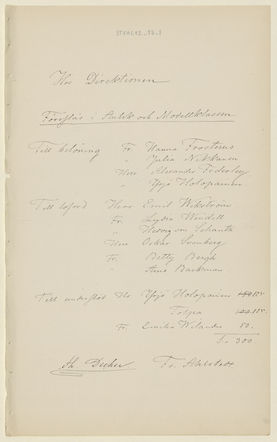 Hos Direktionen
Föreslås i Antik och Modellklassen
Till belöning Fr. Hanna Frosterus
" Julia Nikkanen
Herr Alexander Federley
" Yrjö Holopainen
Till loford Herr Emil Wikström
Fr. Lydia Wendell
" Hedvig von Schantz
Herr Oskar
Fr. Betty Bergh
" Anna Backman
Till understöd Hr Yrjö Holopainen
150.
Fr. Emilie Wilander 50.
300
Fr. Ahlstedt